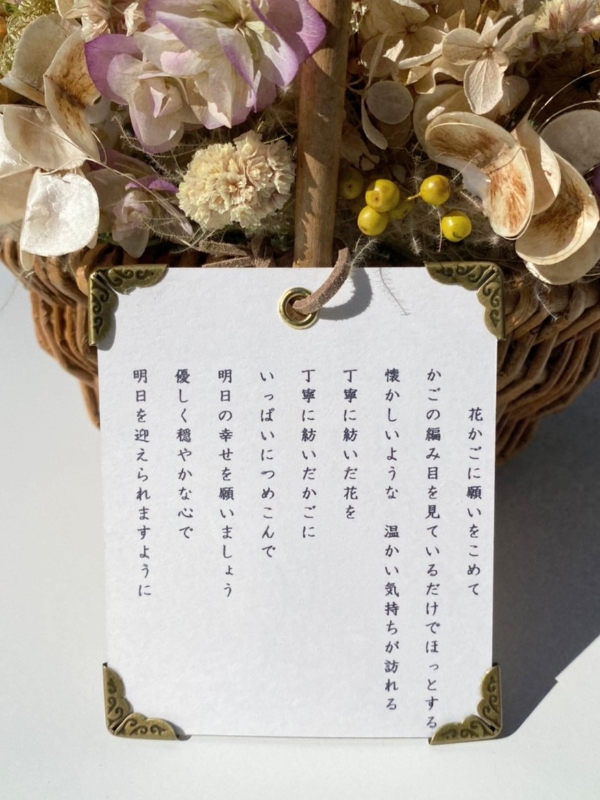 花かごに願いをこめて
かごの編み目を見ているだけでほっとする
懐かしいような　温かい気持ちが訪れる
丁寧に紡いだ花を
丁寧に紡いだかごに
いっぱいにつめこんで
明日の幸せを願いましょう
優しく穏やかな心で
明日を迎えられますように